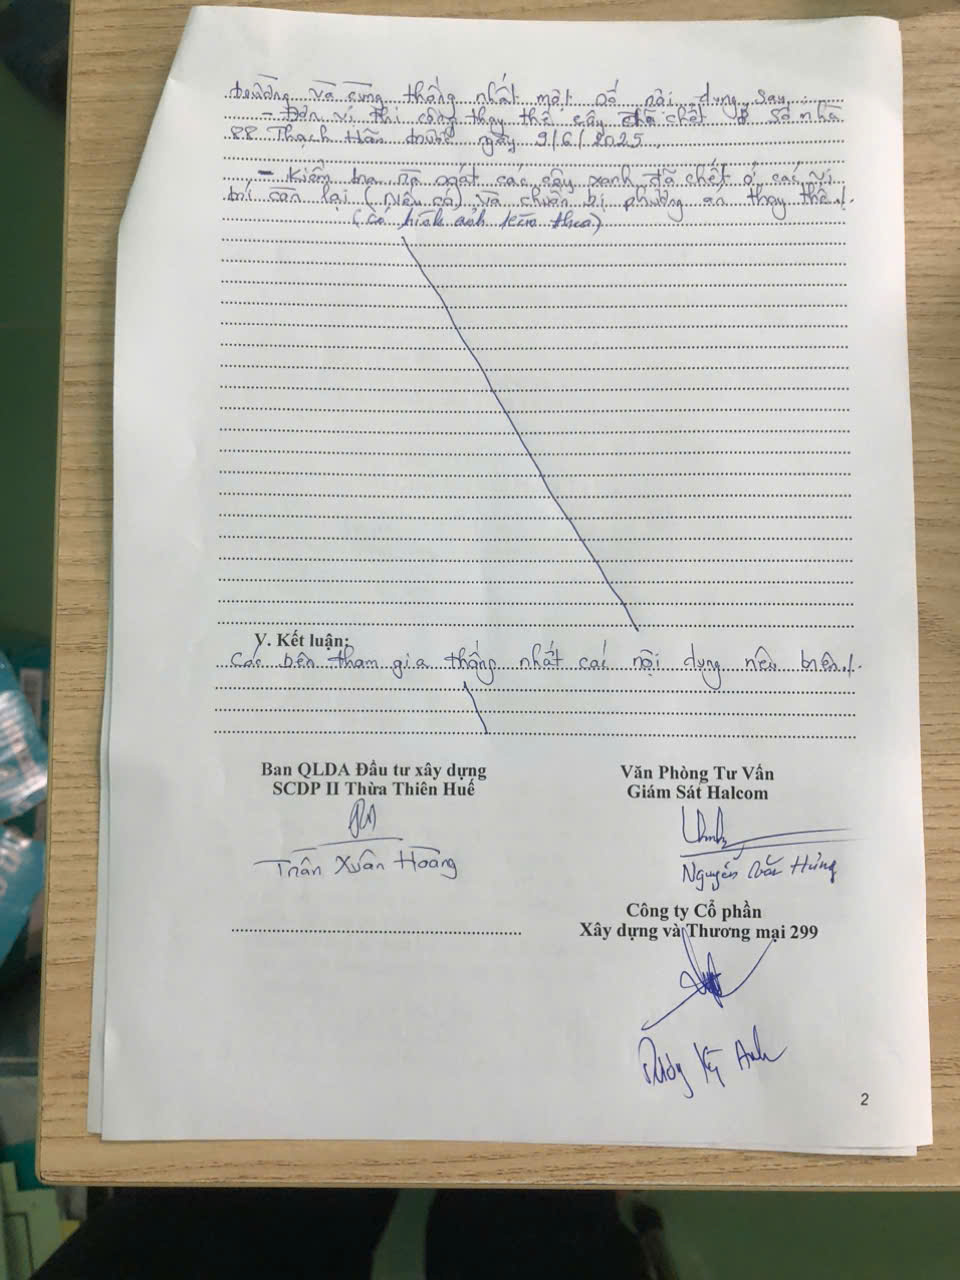 trường và cùng thống nhất một số nội dung sau:
- Đơn vị thi công thay thế cây đã chết ở số nhà
88 Thạch Hãn trước ngày 9/6/2025.
- Kiểm tra rà soát các cây xanh đã chết ở các vị
trí còn lại (nếu có) và chuẩn bị phương án thay thế./.
(Có hình ảnh kèm theo)
V. Kết luận:
Các bên tham gia thống nhất các nội dung nêu trên./.
Ban QLDA Đầu tư xây dựng
SCDP II Thừa Thiên Huế
Văn Phòng Tư Vấn
Giám Sát Halcom
Trần Xuân Hoàng
Nguyễn Văn Hùng
Công ty Cổ phần
Xây dựng và Thương mại 299
Kỳ Anh
2